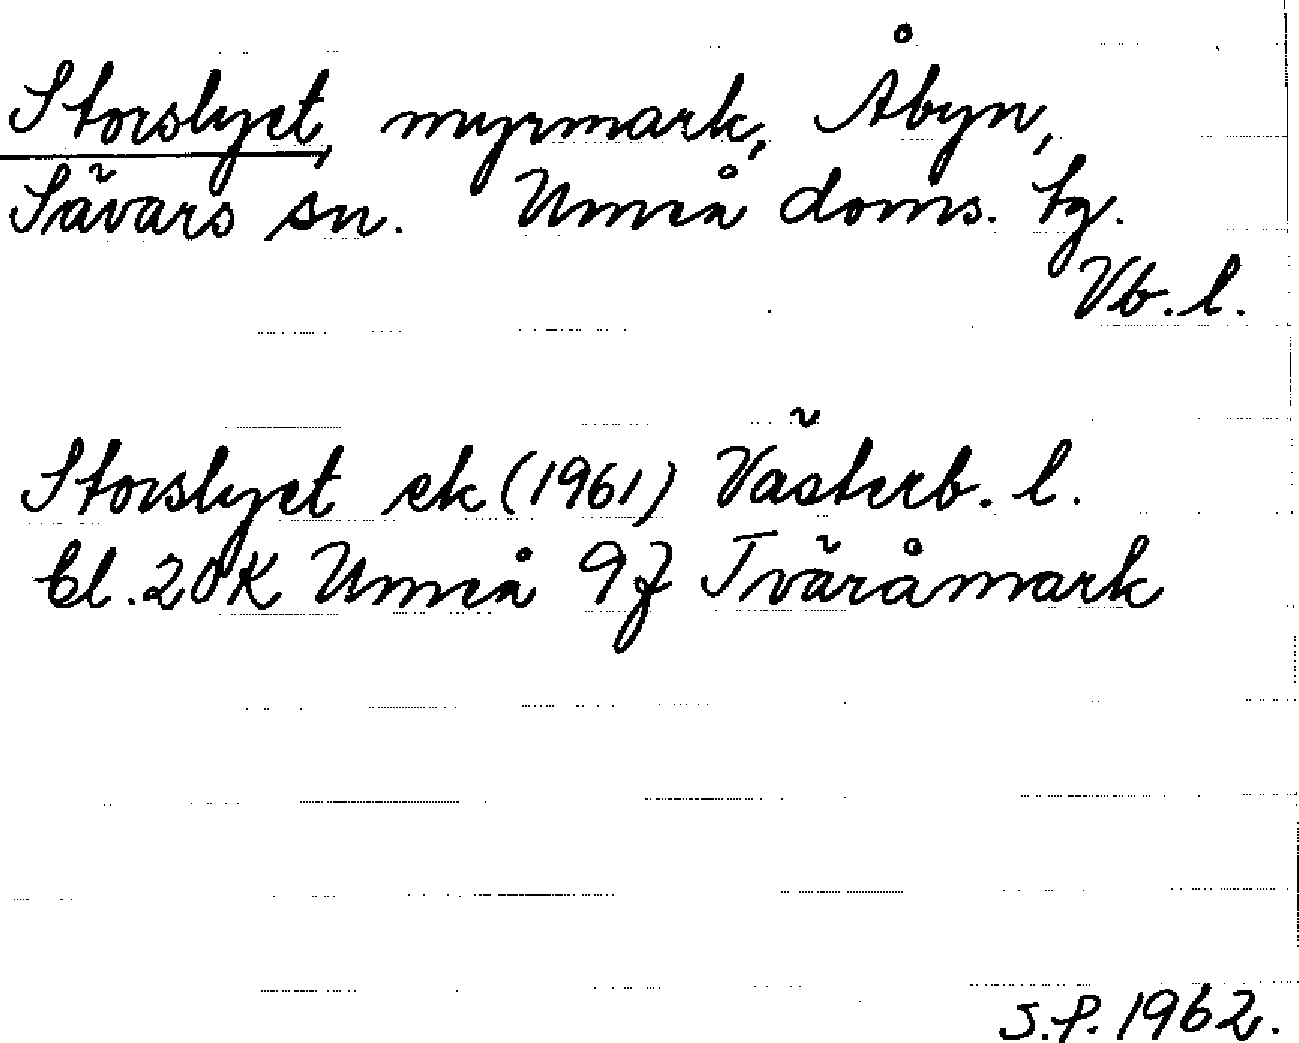 Storslyet, myrmark, Åbyn,
Sävars sn. Umeå doms. tg.
Vb. l.
Storslyet ek (1961) Västerb. l.
Bl. 20K Umeå 9f Tväråmark
S.P. 1962.